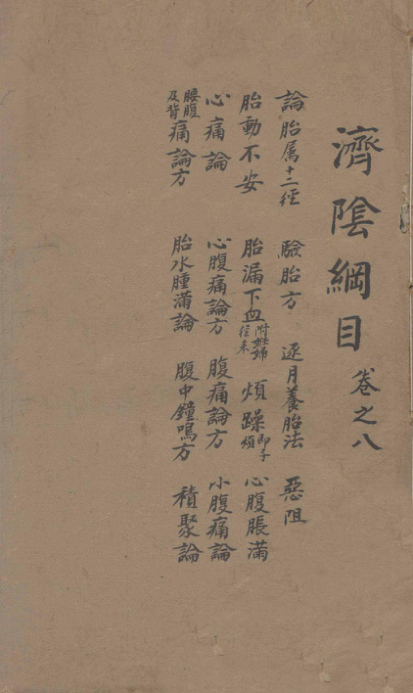 濟陰綱目 卷之八
論胎属十二徑 驗胎方 逐月養胎法 惡阻
胎動不安 胎漏下血 煩躁即子煩 心腹脹滿
心痛論 心腹痛論方 腹痛論方 小腹痛論
腰腹及背痛論方 胎水腫滿論 腹中鐘鳴方 積聚論